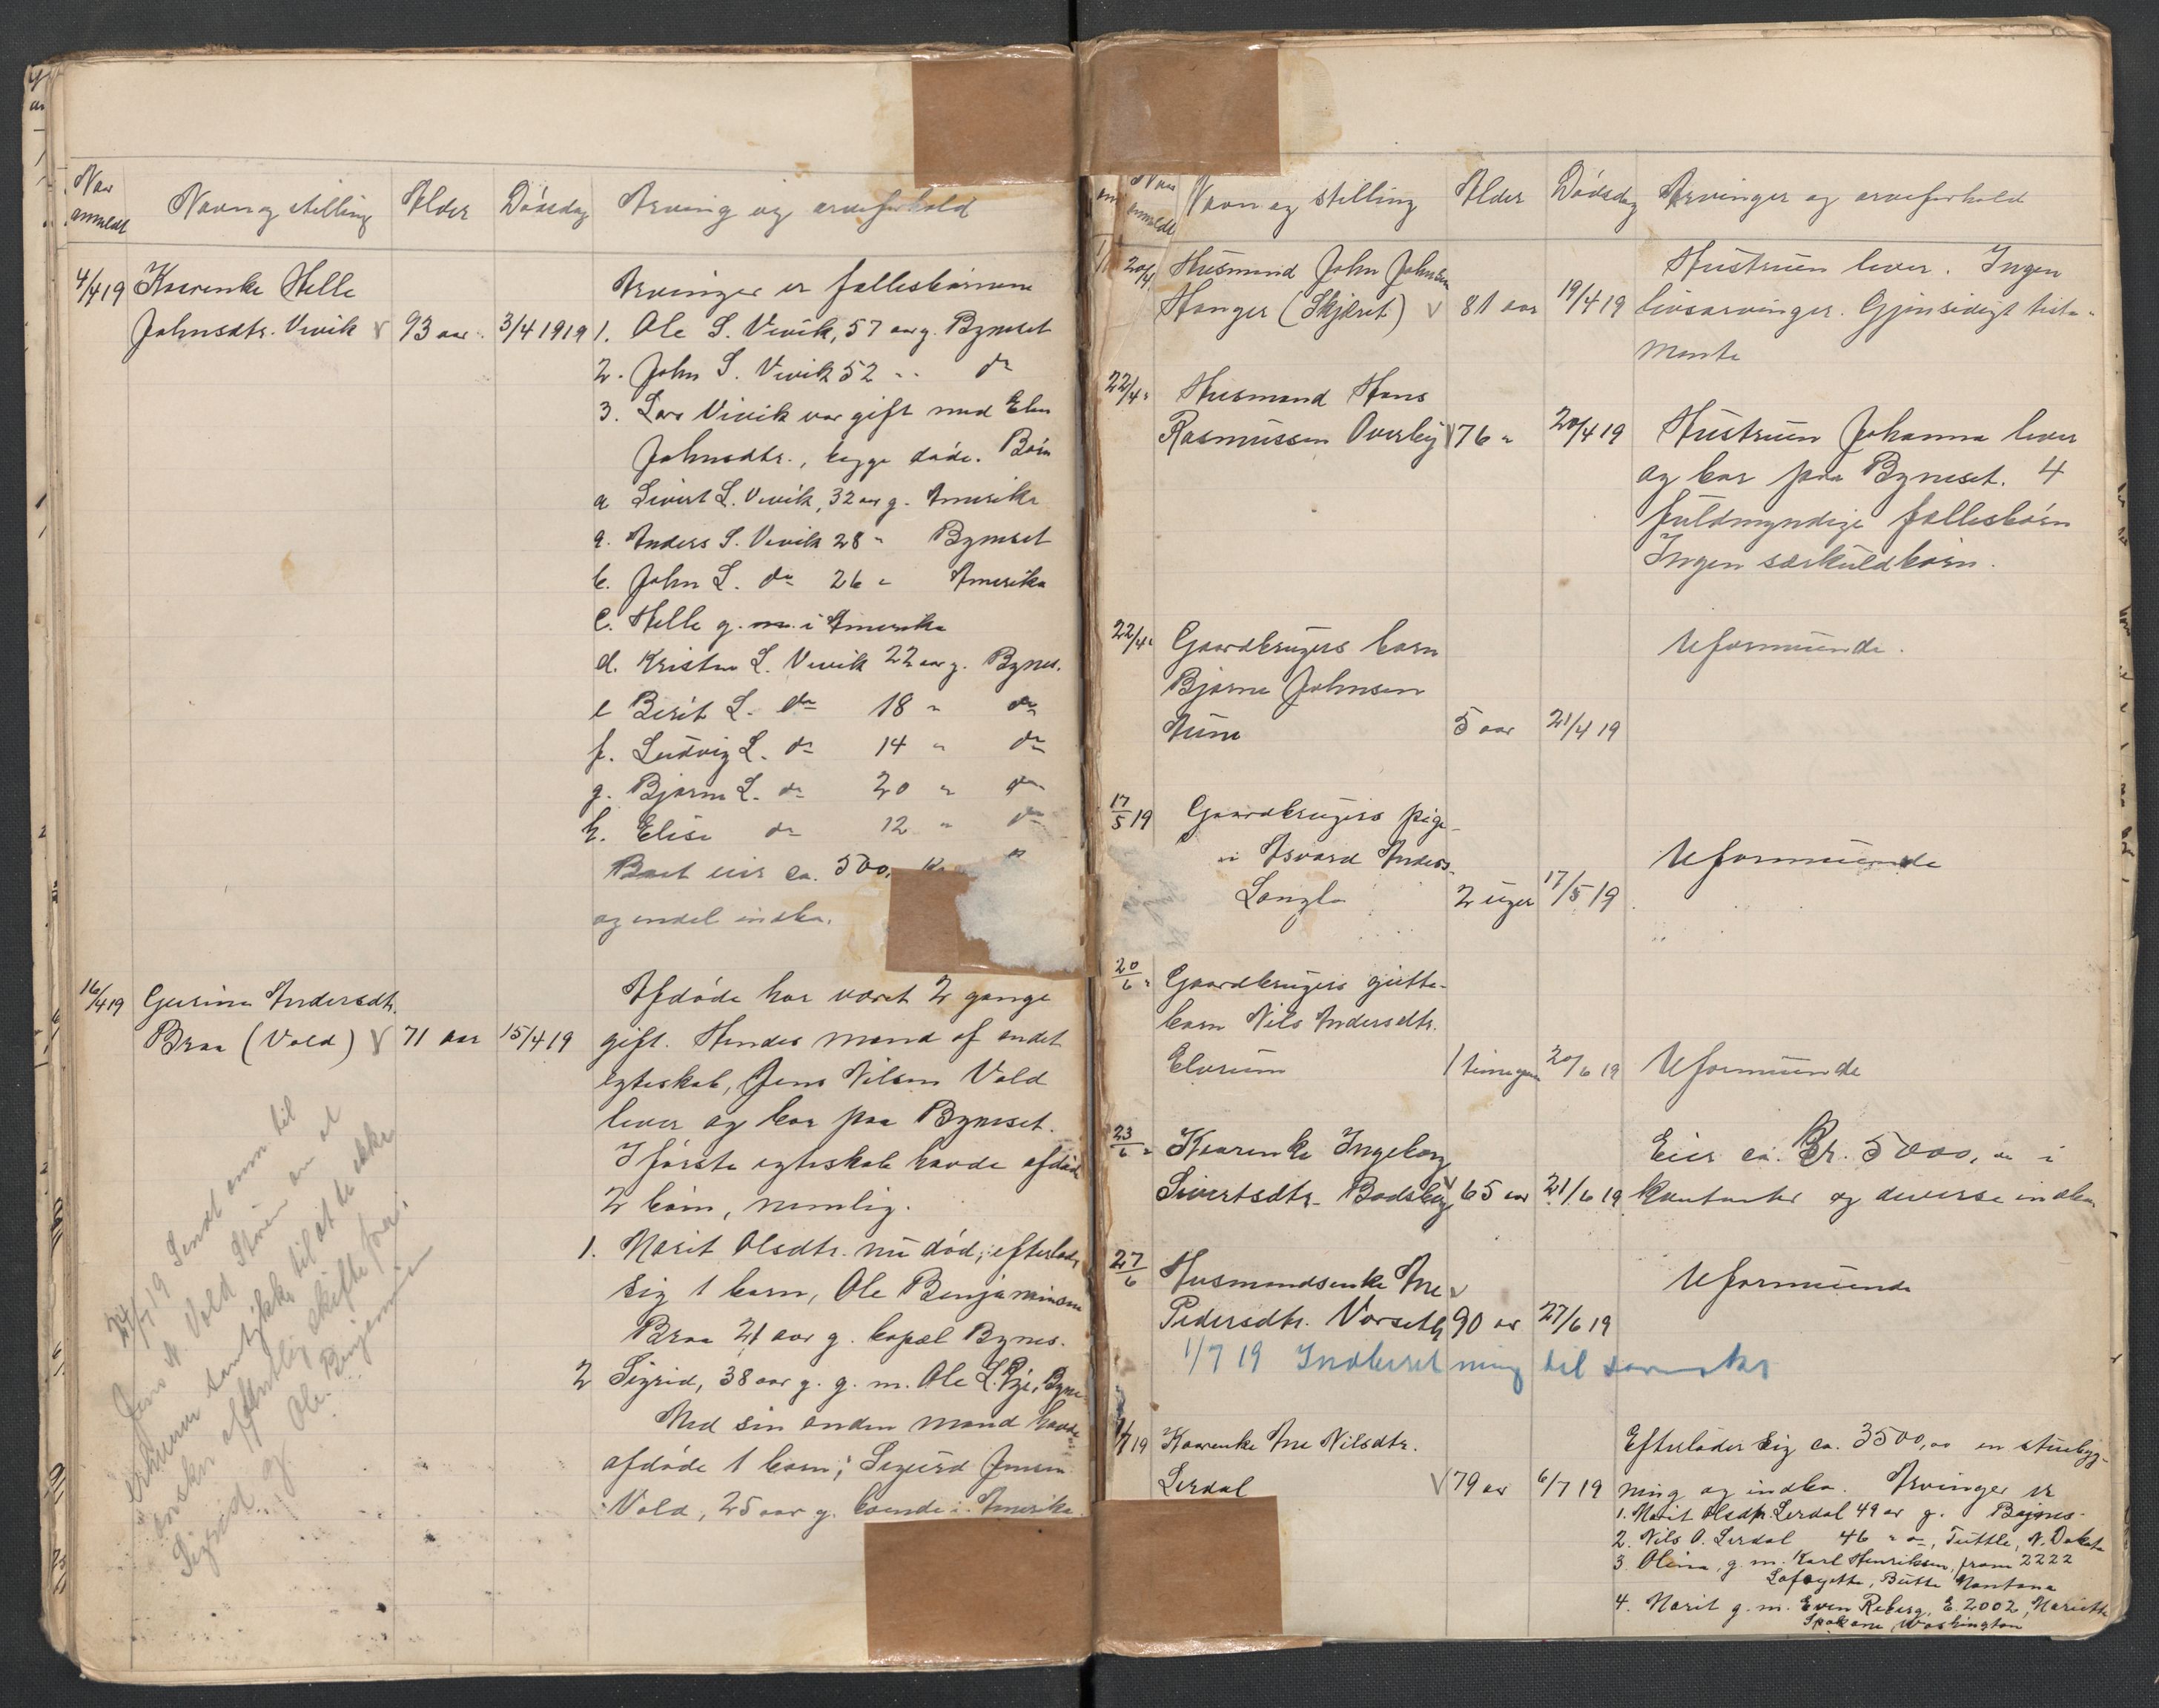 Naar anmeldt
Navn og stilling
Alder
Dödsdag
Arving og arveforhold
4/4 19 Kaarenke Helle
Johnsdtr. Vivik V 93 aar. 3/4 1919
Arvinger er fællesbörnene
1. Ole S. Vivik, 57 aar g. Byneset
2. John S. Vivik 52 " do
3. Lars Vivik var gift med Elen
Johnsdtr., begge döde. Börn
a Sivert L. Vivik, 32 aar g. Amerika
a. Anders S. Vivik 28 " Byneset
b. John L. do 26 " Amerika
c. Helle g. m. i Amerika
d. Kristen L. Vivik 22 aar g. Bynes.
e Berit L. do 18 " do
f. Ludvig L. do 14 " do
g. Bjarne L. do 20 " do
h. Elise do 12 " do
Boet eier ca. 500,
og endel indbo.
16/4 19 Gurine Andersdtr.
Braa (Vold) V 71 aar 15/4 19
Afdöde har været 2 gange
gift. Hendes mand af andet
egteskab, Jens Nilsen Vold
lever og bor paa Byneset.
I förste egteskab havde afdöde
2 börn, nemlig.
1. Marit Olsdtr. nu död, efterlader
sig 1 barn, Ole Benjaminsen
Braa 21 aar g. Bynes.
2 Sigrid, 38 aar g. g. m. Ole L. Bynes
Med sin anden mand havde
afdöde 1 barn, Sigurd Jensen
Vold, 25 aar g. boende i Amerika.
24/7 19 Sendt til
Jens N. Vold Stören om at
samtykke til at de ikke
önsker offentlig skifte
Sigrid og Ole Benjaminsen
Naar anmeldt
Navn og stilling
Alder
Dödsdag
Arvinger og arveforhold
20/4 Husmand John Johnsen
Hanger (Skjæret) V 81 aar 19/4 19
Hustruen lever. Ingen
livsarvinger. Gjensidigt testa-
mente
22/4 " Husmand Hans
Rasmussen Overby V 76 " 20/4 19
Hustruen Johanna lever
og bor paa Byneset. 4
fuldmyndige fællesbörn
Ingen særkuldbörn.
22/4 " Gaardbrugers barn
Bjarne Johnsen
Aune 5 aar 21/4 19
Uformuende.
17/5 19 Gaardbrugers pige-
Anders-
Langlo 2 uger 17/5 19
Uformuende
20/6 " Gaardbrugers gutte-
barn Nils Andersdtr.
Elvrum 1 time gam 20/6 19 Uformuende
23/6 " Kaarenke Ingeborg
Sivertsdtr. Bodsberg V 65 aar 21/6 19
Eier ca. Kr. 5000, oo i
kontanter og diverse indbo
27/6 Husmandsenke Ane V
Pedersdtr. Vorseth 90 aar 27/6 19
Uformuende
1/7 19 Indberetning til
7/7 19 Kaarenke Ane Nilsdtr.
Lerdal V 79 aar 6/7 19
Efterlader sig ca. 3500,oo en stuebyg-
ning og indbo. Arvinger er
1. Marit Olsdtr. Lerdal 49 aar g. Bynes.
2. Nils O. Lerdal 46 " , Tuttle, N. Dakota
3. Olina, g. m. Karl Henriksen, 2222
Lafayette, Butte Montana
4. Marit g. m. Even Reberg, E. 2002, Marietta
Spokane, Washington